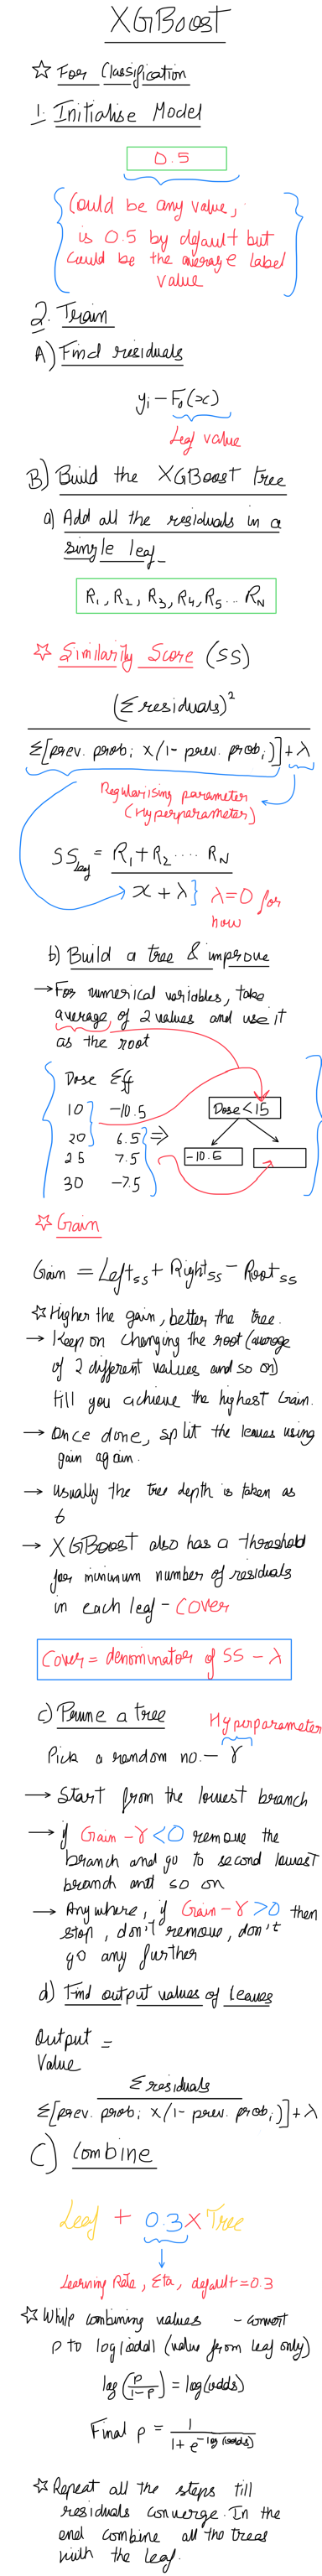 XGBoost
☆ For Classification
1. Initialise Model
0.5
Could be any value,
is 0.5 by default but
could be the average label
value
2. Train
A) Find residuals
yᵢ − F₀(x)
Leaf value
B) Build the XGBoost tree
a) Add all the residuals in a
single leaf
R₁, R₂, R₃, R₄, R₅... R_N
☆ Similarity Score (SS)
(Σ residuals)²
Σ[prev. probᵢ x(1- prev. probᵢ)] + λ
Regularising parameter
(Hyperparameter)
SS_leaf = R₁+R₂.... R_N
x + λ } λ=0 for
now
b) Build a tree & improve
→ For numerical variables, take
average of 2 values and use it
as the root
Dose Eff
10 -10.5 Dose<15
20 6.5 ⇒
25 7.5 -10.5
30 -7.5
☆ Gain
Gain = Left_SS + Right_SS − Root_SS
☆ Higher the gain, better the tree.
→ Keep on changing the root (average
of 2 different values and so on)
till you achieve the highest Gain.
→ Once done, split the leaves using
gain again.
→ Usually the tree depth is taken as
6
→ XGBoost also has a threshold
for minimum number of residuals
in each leaf - Cover
Cover = denominator of SS − λ
c) Prune a tree
Hyperparameter
Pick a random no. − γ
→ Start from the lowest branch
→ if Gain-γ <0 remove the
branch and go to second lowest
branch and so on
→ Anywhere, if Gain-γ >0 then
stop, don't remove, don't
go any further
d) Find output values of leaves
Output =
Value
Σ residuals
Σ[prev. probᵢ x(1- prev. probᵢ)] + λ
C) Combine
Leaf + 0.3 x Tree
Learning Rate, Eta, default=0.3
☆ While combining values - convert
p to log(odds) (value from leaf only)
log(p/1-p) = log(odds)
Final p = 1/1+e^-log(odds)
☆ Repeat all the steps till
residuals converge. In the
end combine all the trees
with the leaf.